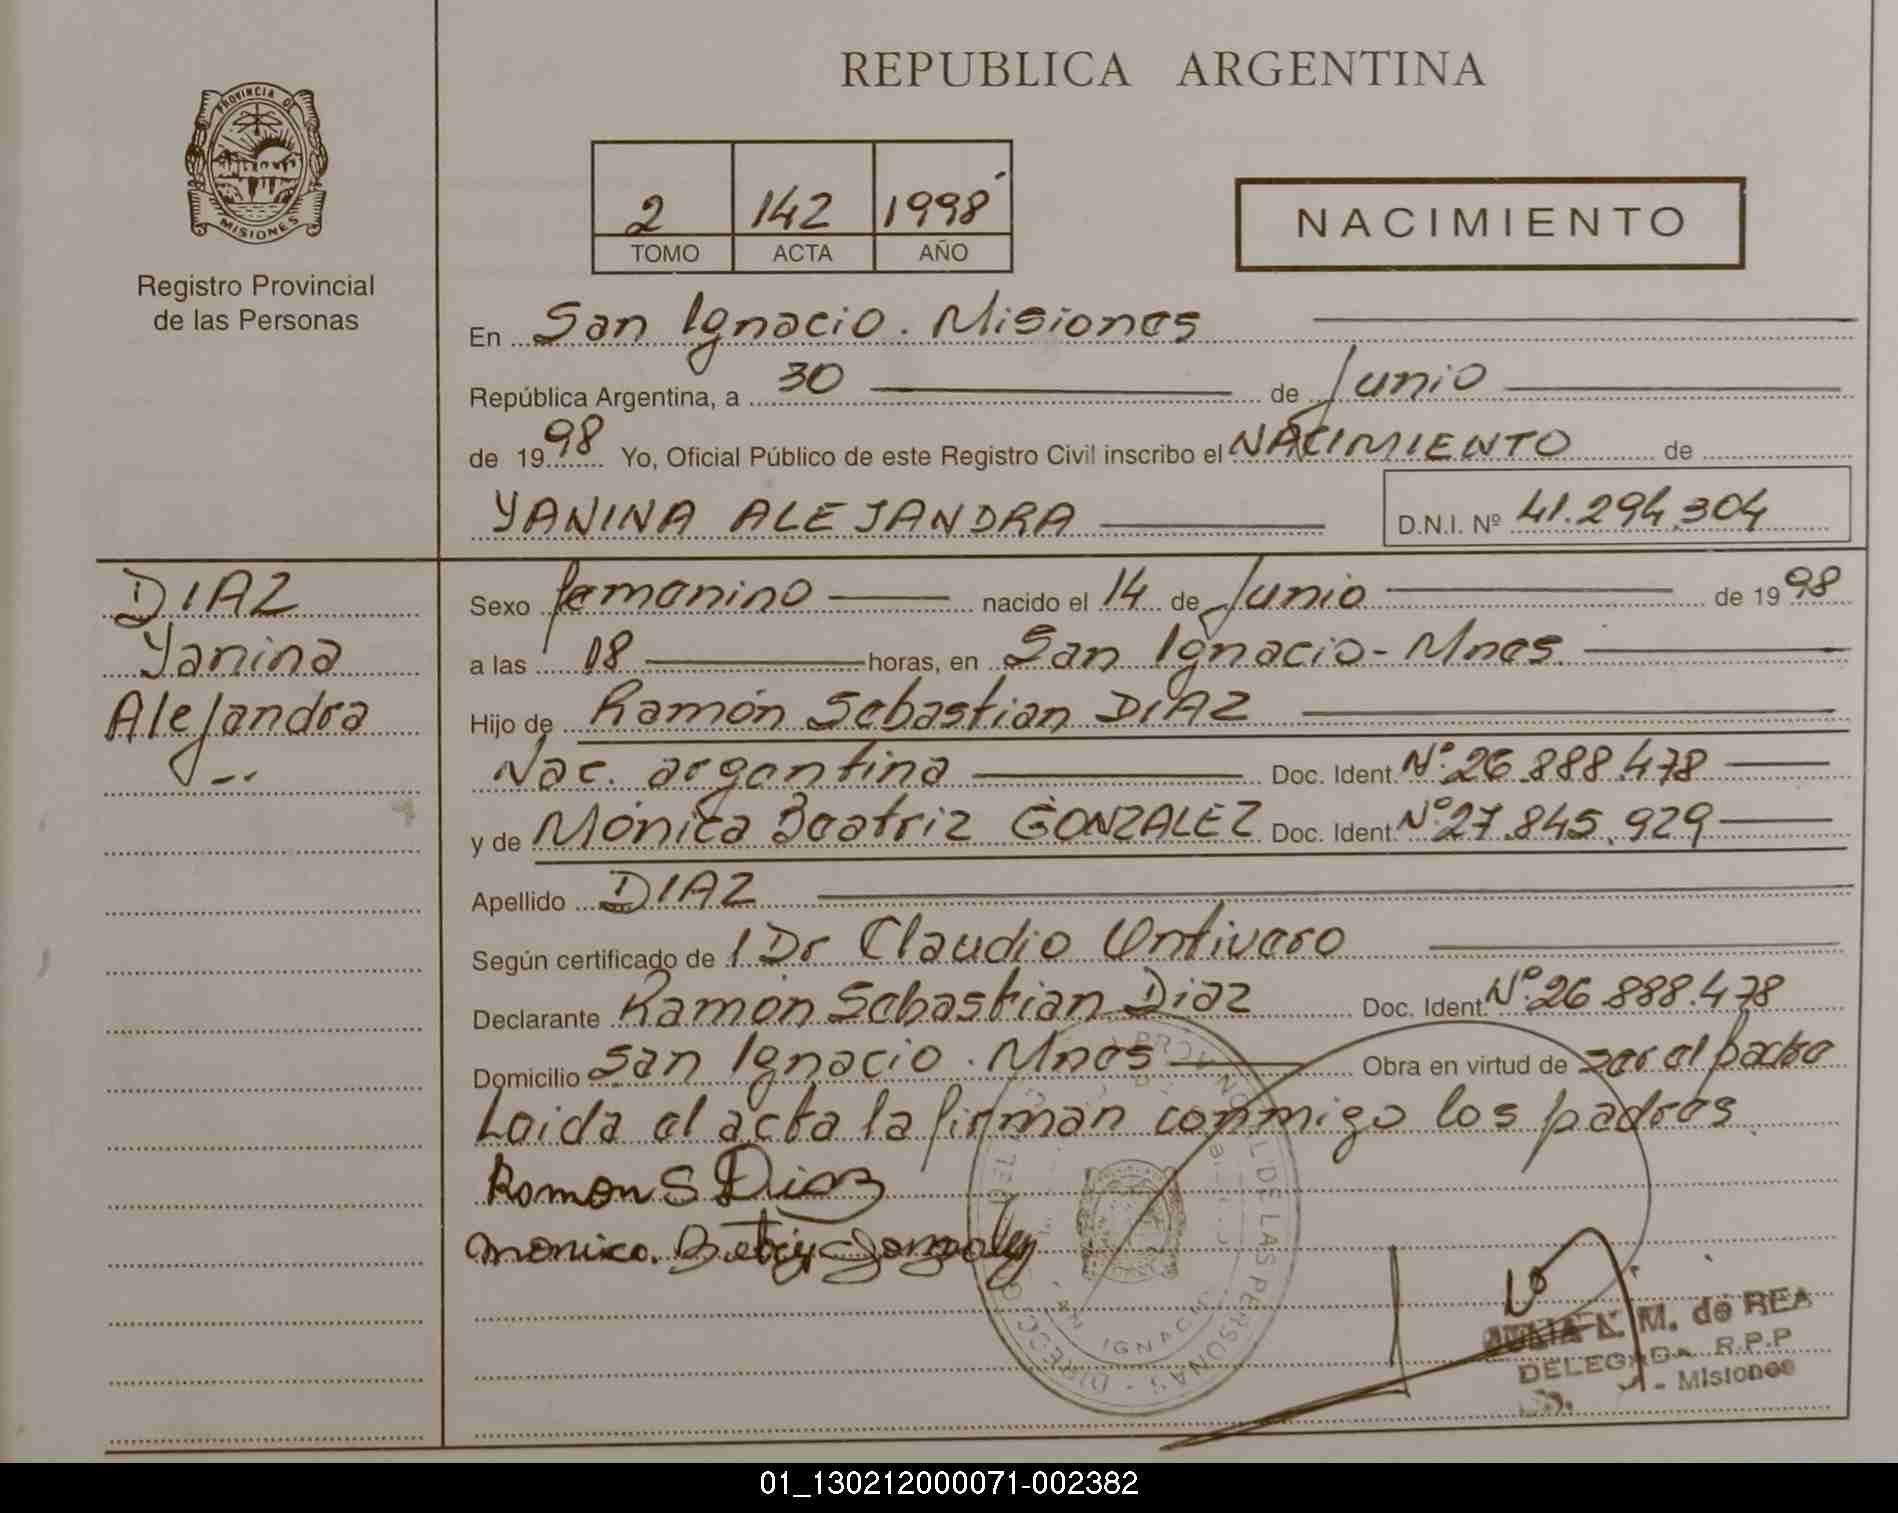 REPUBLICA ARGENTINA
PROVINCIA DE
MISIONES
Registro Provincial
de las Personas
2 142 1998
TOMO ACTA AÑO
NACIMIENTO
En San Ignacio. Misiones
República Argentina, a 30 de Junio
de 1998 Yo, Oficial Público de este Registro Civil inscribo el NACIMIENTO de
YANINA ALEJANDRA D.N.I. Nº 41.294.304
DIAZ
Yanina
Alejandra
Sexo femenino nacido el 14 de Junio de 1998
a las 18 horas, en San Ignacio - Mnes.
Hijo de Ramón Sebastian DIAZ
Nac. argentina Doc. Ident. Nº 26.888.478
y de Mónica Beatriz GONZALEZ Doc. Ident. Nº 27.845.929
Apellido DIAZ
Según certificado de 1 Dr Claudio Ontivero
Declarante Ramón Sebastian Diaz Doc. Ident. Nº 26.888.478
Domicilio San Ignacio. Mnes Obra en virtud de ser el padre
Leida el acta la firman conmigo los padres
Ramon S Diaz
Monica Gonzalez
DE LAS PERSONAS
IGNACIO
L. M. de REA
DELEGADA R.P.P
- Misiones
01_130212000071-002382